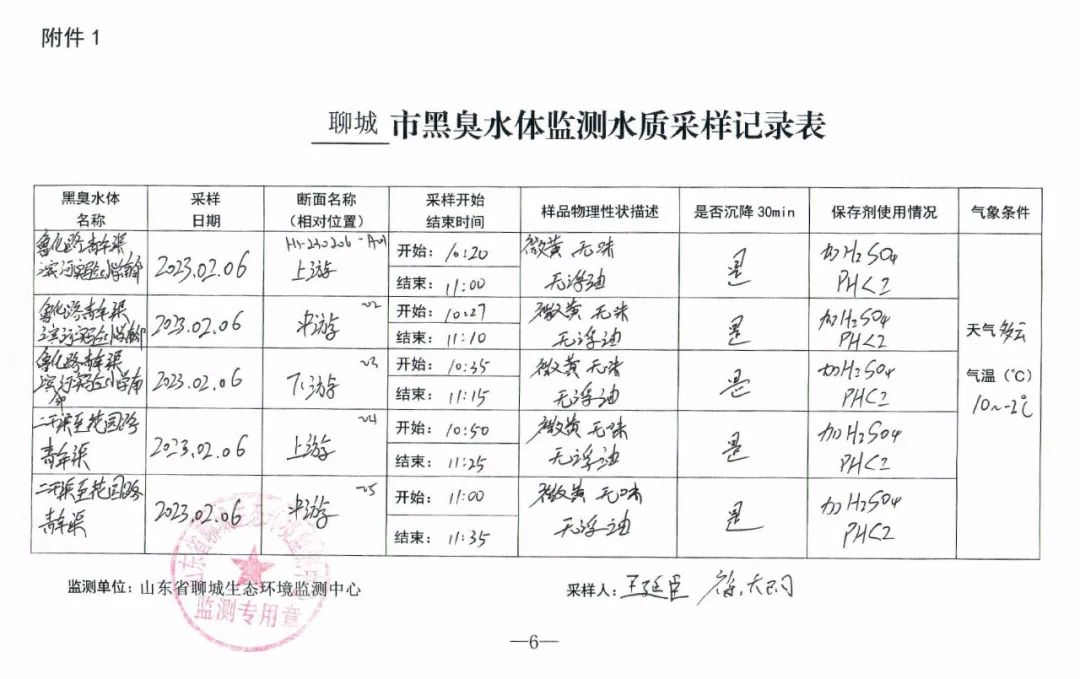 附件 1
聊城 市黑臭水体监测水质采样记录表
黑臭水体名称 采样日期 断面名称（相对位置） 采样开始结束时间 样品物理性状描述 是否沉降 30min 保存剂使用情况 气象条件
鲁化路青年渠 2023.02.06 上游 开始：10:20 微黄 无味 是 加H₂SO₄
滨河实验小学 结束：11:00 无浮油 PH<2
鲁化路青年渠 2023.02.06 ~02 中游 开始：10:27 微黄 无味 是 加H₂SO₄
滨河实验小学 结束：11:10 无浮油 PH<2
鲁化路青年渠 2023.02.06 ~03 下游 开始：10:35 微黄 无味 是 加H₂SO₄
滨河实验小学南 结束：11:15 无浮油 PH<2
二干渠至花园路 2023.02.06 ~04 上游 开始：10:50 微黄 无味 是 加H₂SO₄
青年渠 结束：11:25 无浮油 PH<2
二干渠至花园路 2023.02.06 ~05 中游 开始：11:00 微黄 无味 是 加H₂SO₄
青年渠 结束：11:35 无浮油 PH<2
天气 多云
气温（℃）
10~-2℃
监测单位：山东省聊城生态环境监测中心 采样人：王延臣
山东省聊城生态环境监测中心
监测专用章
—6—